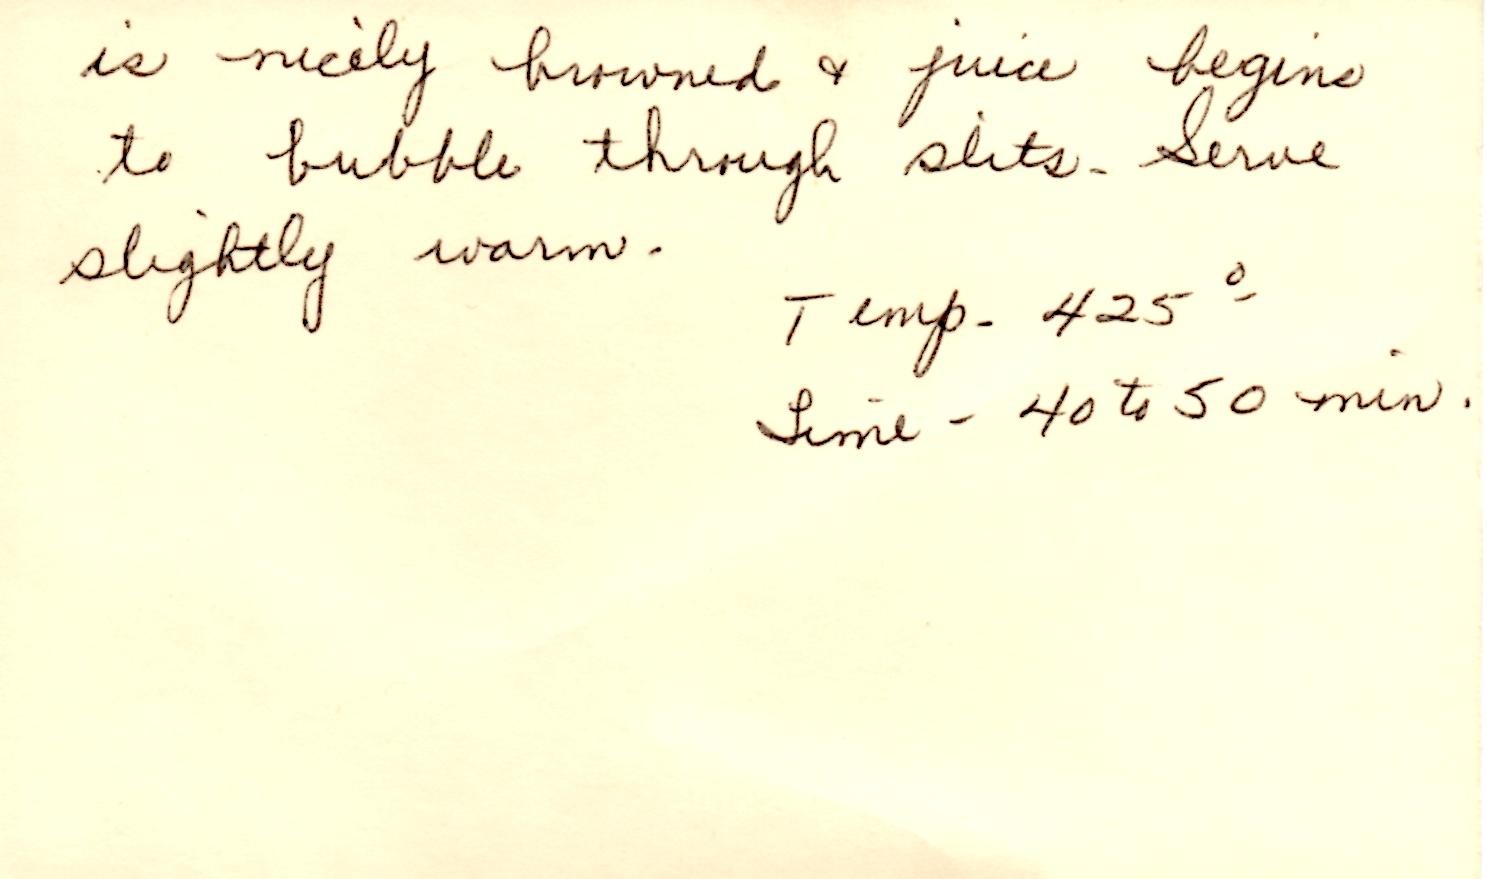 is nicely browned & juice begins
to bubble through slits. Serve
slightly warm.
Temp. 425°
Time - 40 to 50 min.